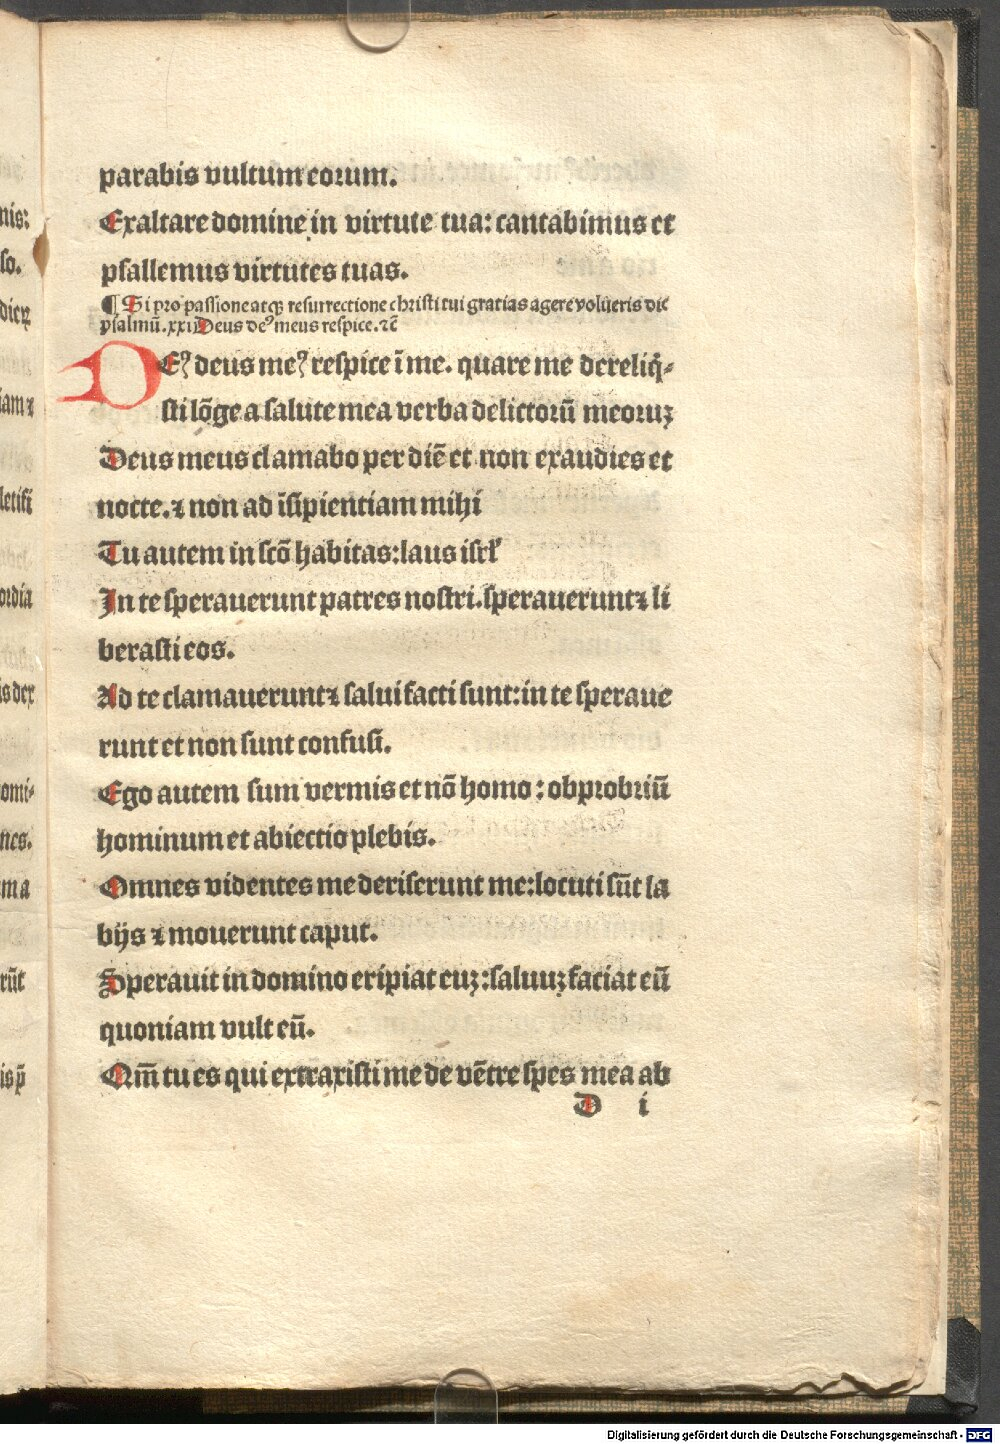 parabis vultum eorum.
Exaltare domine in virtute tua: cantabimus et
psallemus virtutes tuas.
¶ Si pro passione atqȝ resurrectione christi tui gratias agere volueris dic
psalmū .xxi. Deus deꝰ meus respice. ⁊c̄
DEꝰ deus meꝰ respice ī me. quare me dereliq̇-
sti lōge a salute mea verba delictorū meoruȝ
Deus meus clamabo per diē et non exaudies et
nocte. ⁊ non ad īsipientiam mihi
Tu autem in scō habitas: laus isrl̓
In te sperauerunt patres nostri. sperauerunt ⁊ li
berasti eos.
Ad te clamauerunt ⁊ salui facti sunt: in te speraue
runt et non sunt confusi.
Ego autem sum vermis et nō homo: obprobriū
hominum et abiectio plebis.
Omnes videntes me deriserunt me: locuti sūt la
bijs ⁊ mouerunt caput.
Sperauit in domino eripiat euȝ: saluuȝ faciat eū
quoniam vult eū.
Qm̄ tu es qui extraxisti me de vētre spes mea ab
D i
nis:
so.
iam ⁊
letifi
ordia
is dex
omi-
nes.
ma
rūt
is p̄
Digitalisierung gefördert durch die Deutsche Forschungsgemeinschaft - DFG